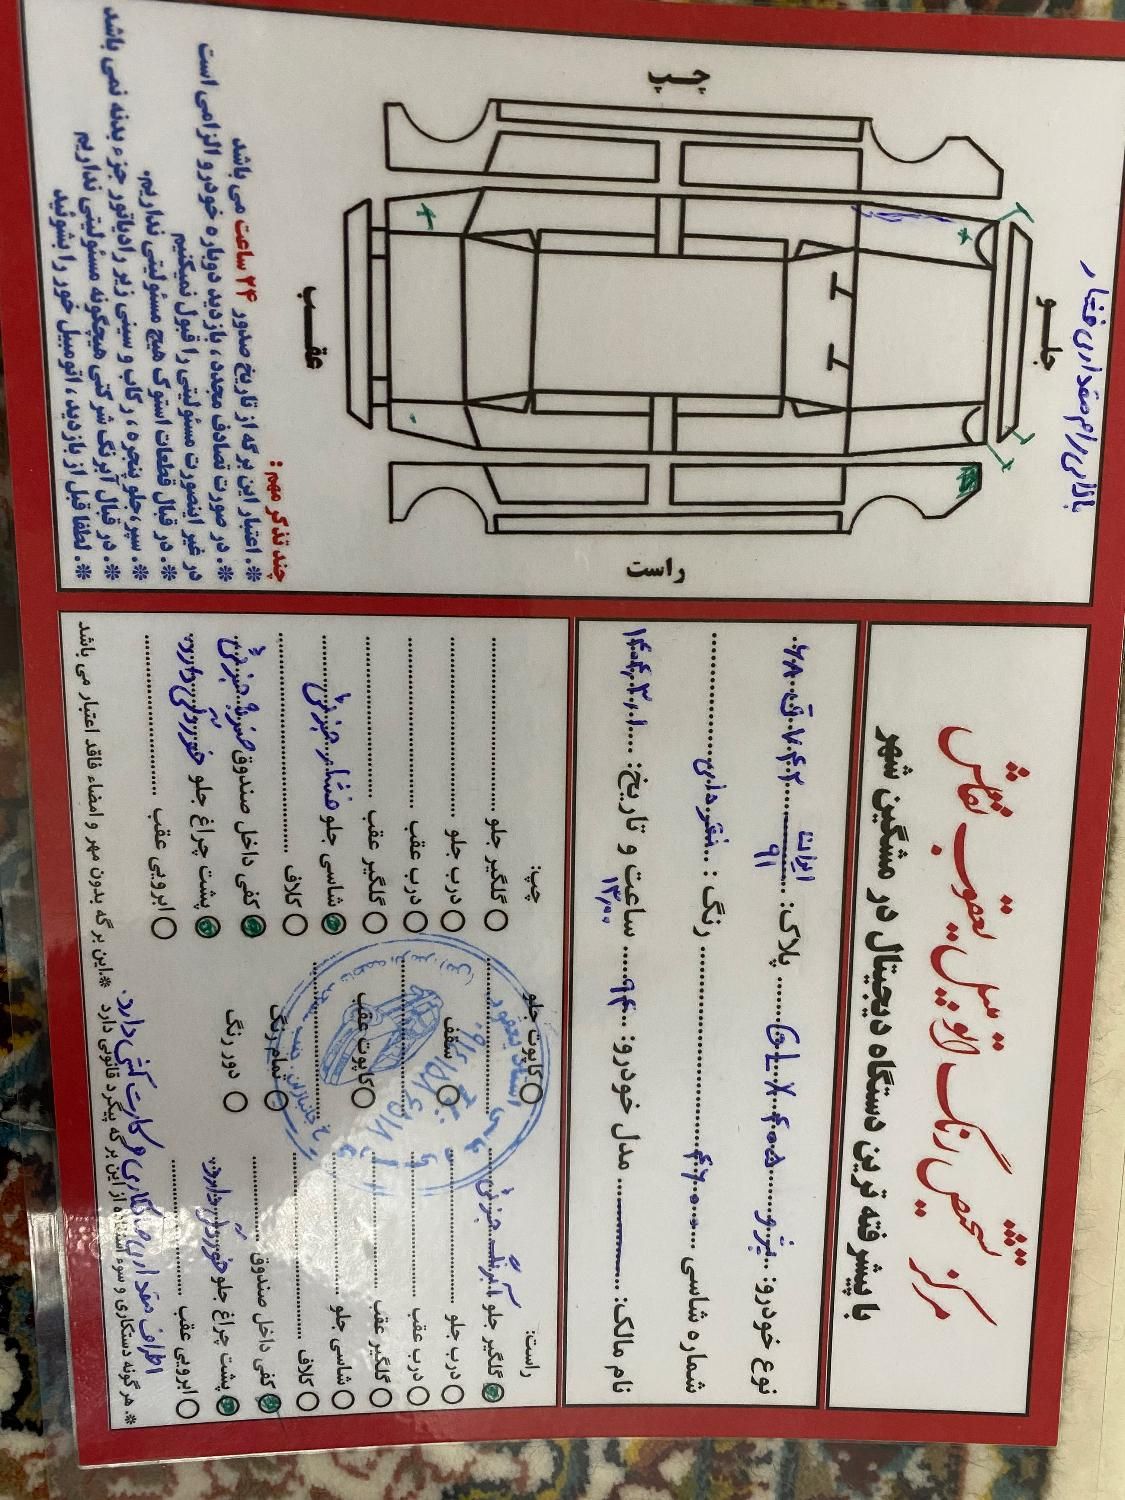 مرکز تشخیص رنگ اتومبیل یعقوب نقاش
با پیشرفته ترین دستگاه دیجیتال در مشگین شهر
نوع خودرو: پژو GLX ۴۰۵ پلاک: ایران ۹۱ ۷۴۲ ق ۶۸
شماره شاسی ۴۶۰۰۰ رنگ: نقره ایی
نام مالک: مدل خودرو: ۹۴ ساعت و تاریخ: ۱۴۰۴،۳،۱ ۱۳،۰۰
راست:
گلگیر جلو آبرنگ جزئی
درب جلو
درب عقب
گلگیر عقب
شاسی جلو
کلاف
کفی داخل صندوق
پشت چراغ جلو خوردگی دارد
ابرویی عقب
کاپوت جلو
سقف
کاپوت عقب
تمام رنگ
دور رنگ
چپ:
گلگیر جلو
درب جلو
درب عقب
گلگیر عقب
شاسی جلو فشار جزئی
کلاف
کفی داخل صندوق ضربه جزئی
پشت چراغ جلو خوردگی دارد
ابرویی عقب
اطراف مقداری صافکاری و کارت کشی دارد.
※. هر گونه دستکاری و سوء استفاده از این برگه پیگرد قانونی دارد ※.این برگه بدون مهر و امضاء فاقد اعتبار می باشد
بالای رام مقداری فشار
جلو
چپ
راست
عقب
چند تذکر مهم:
※. اعتبار این برگه از تاریخ صدور ۲۴ ساعت می باشد
※. در صورت تصادف مجدد، بازدید دوباره خودرو الزامی است
در غیر اینصورت مسئولیتی را قبول نمیکنیم
※. در قبال قطعات استوک هیچ مسئولیتی نداریم.
※. سپر، جلو پنجره، رکاب و سینی زیر رادیاتور جزء بدنه نمی باشد
※. در قبال آبرنگ شرکتی هیچگونه مسئولیتی نداریم
※. لطفا قبل از بازدید، اتومبیل خور را بشوئید